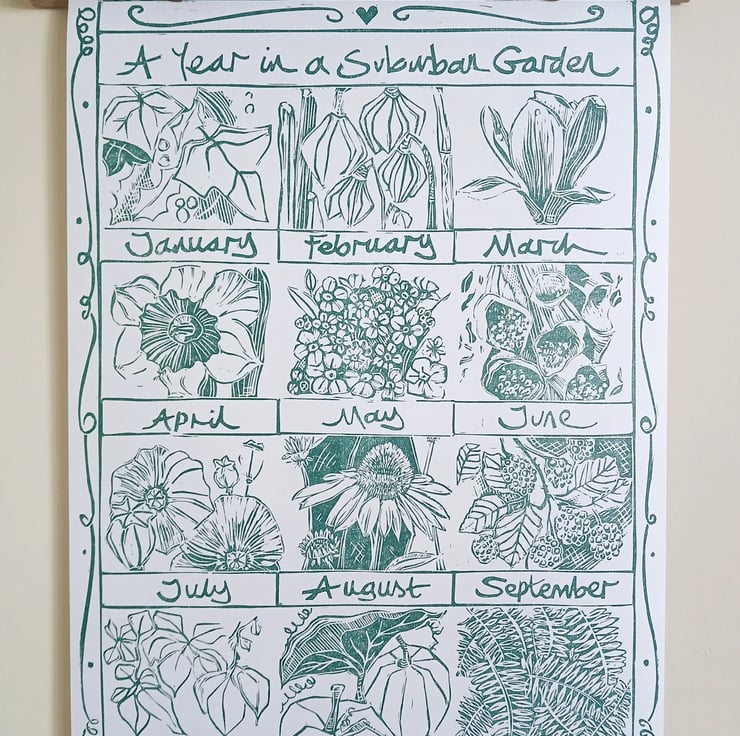 A Year in a Suburban Garden
January February March
April May June
July August September